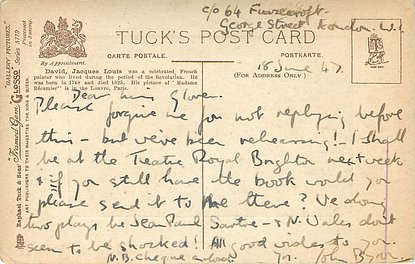 c/o 64 Funzecroft
George Street London. W.1.
TUCK'S POST CARD
CARTE POSTALE.
POSTKARTE.
By Appointment
18 June 47.
(For Address Only)
David, Jacques Louis was a celebrated French
painter who lived during the period of the Revolution. He
was born in 1748 and died 1825. His picture of "Madame
Récamier" is in the Louvre, Paris.
"GALLERY PICTURES."
"Framed Gem" Glosso Series 5779
Raphael Tuck & Sons'
ART PUBLISHERS TO THEIR MAJESTIES THE KING & QUEEN
Dear Miss Glover.
Please forgive me for not replying before
this – but we've been rehearsing! – I shall
be at the Teatre Royal Brighton next week
if you still have the book would you
please send it to me there? I've doing
two plays be Jean Paul Sartre – & N. Wales don't
seem to be shocked! All good wishes to you.
N.B. Cheque enclosed Yrs. John Byron.